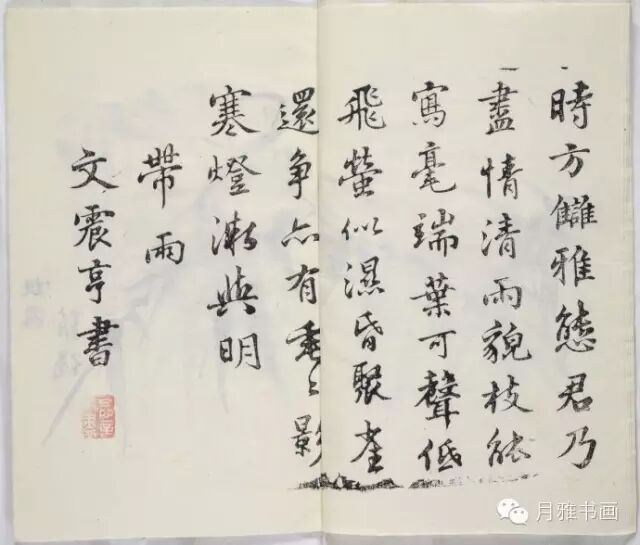 時方讎雅態君乃
盡情清雨貌枝能
寫毫端葉可聲低
飛螢似濕昏聚奎
還争亦有垂〻影
寒燈漸與明
帶雨
文震亨書
月雅书画